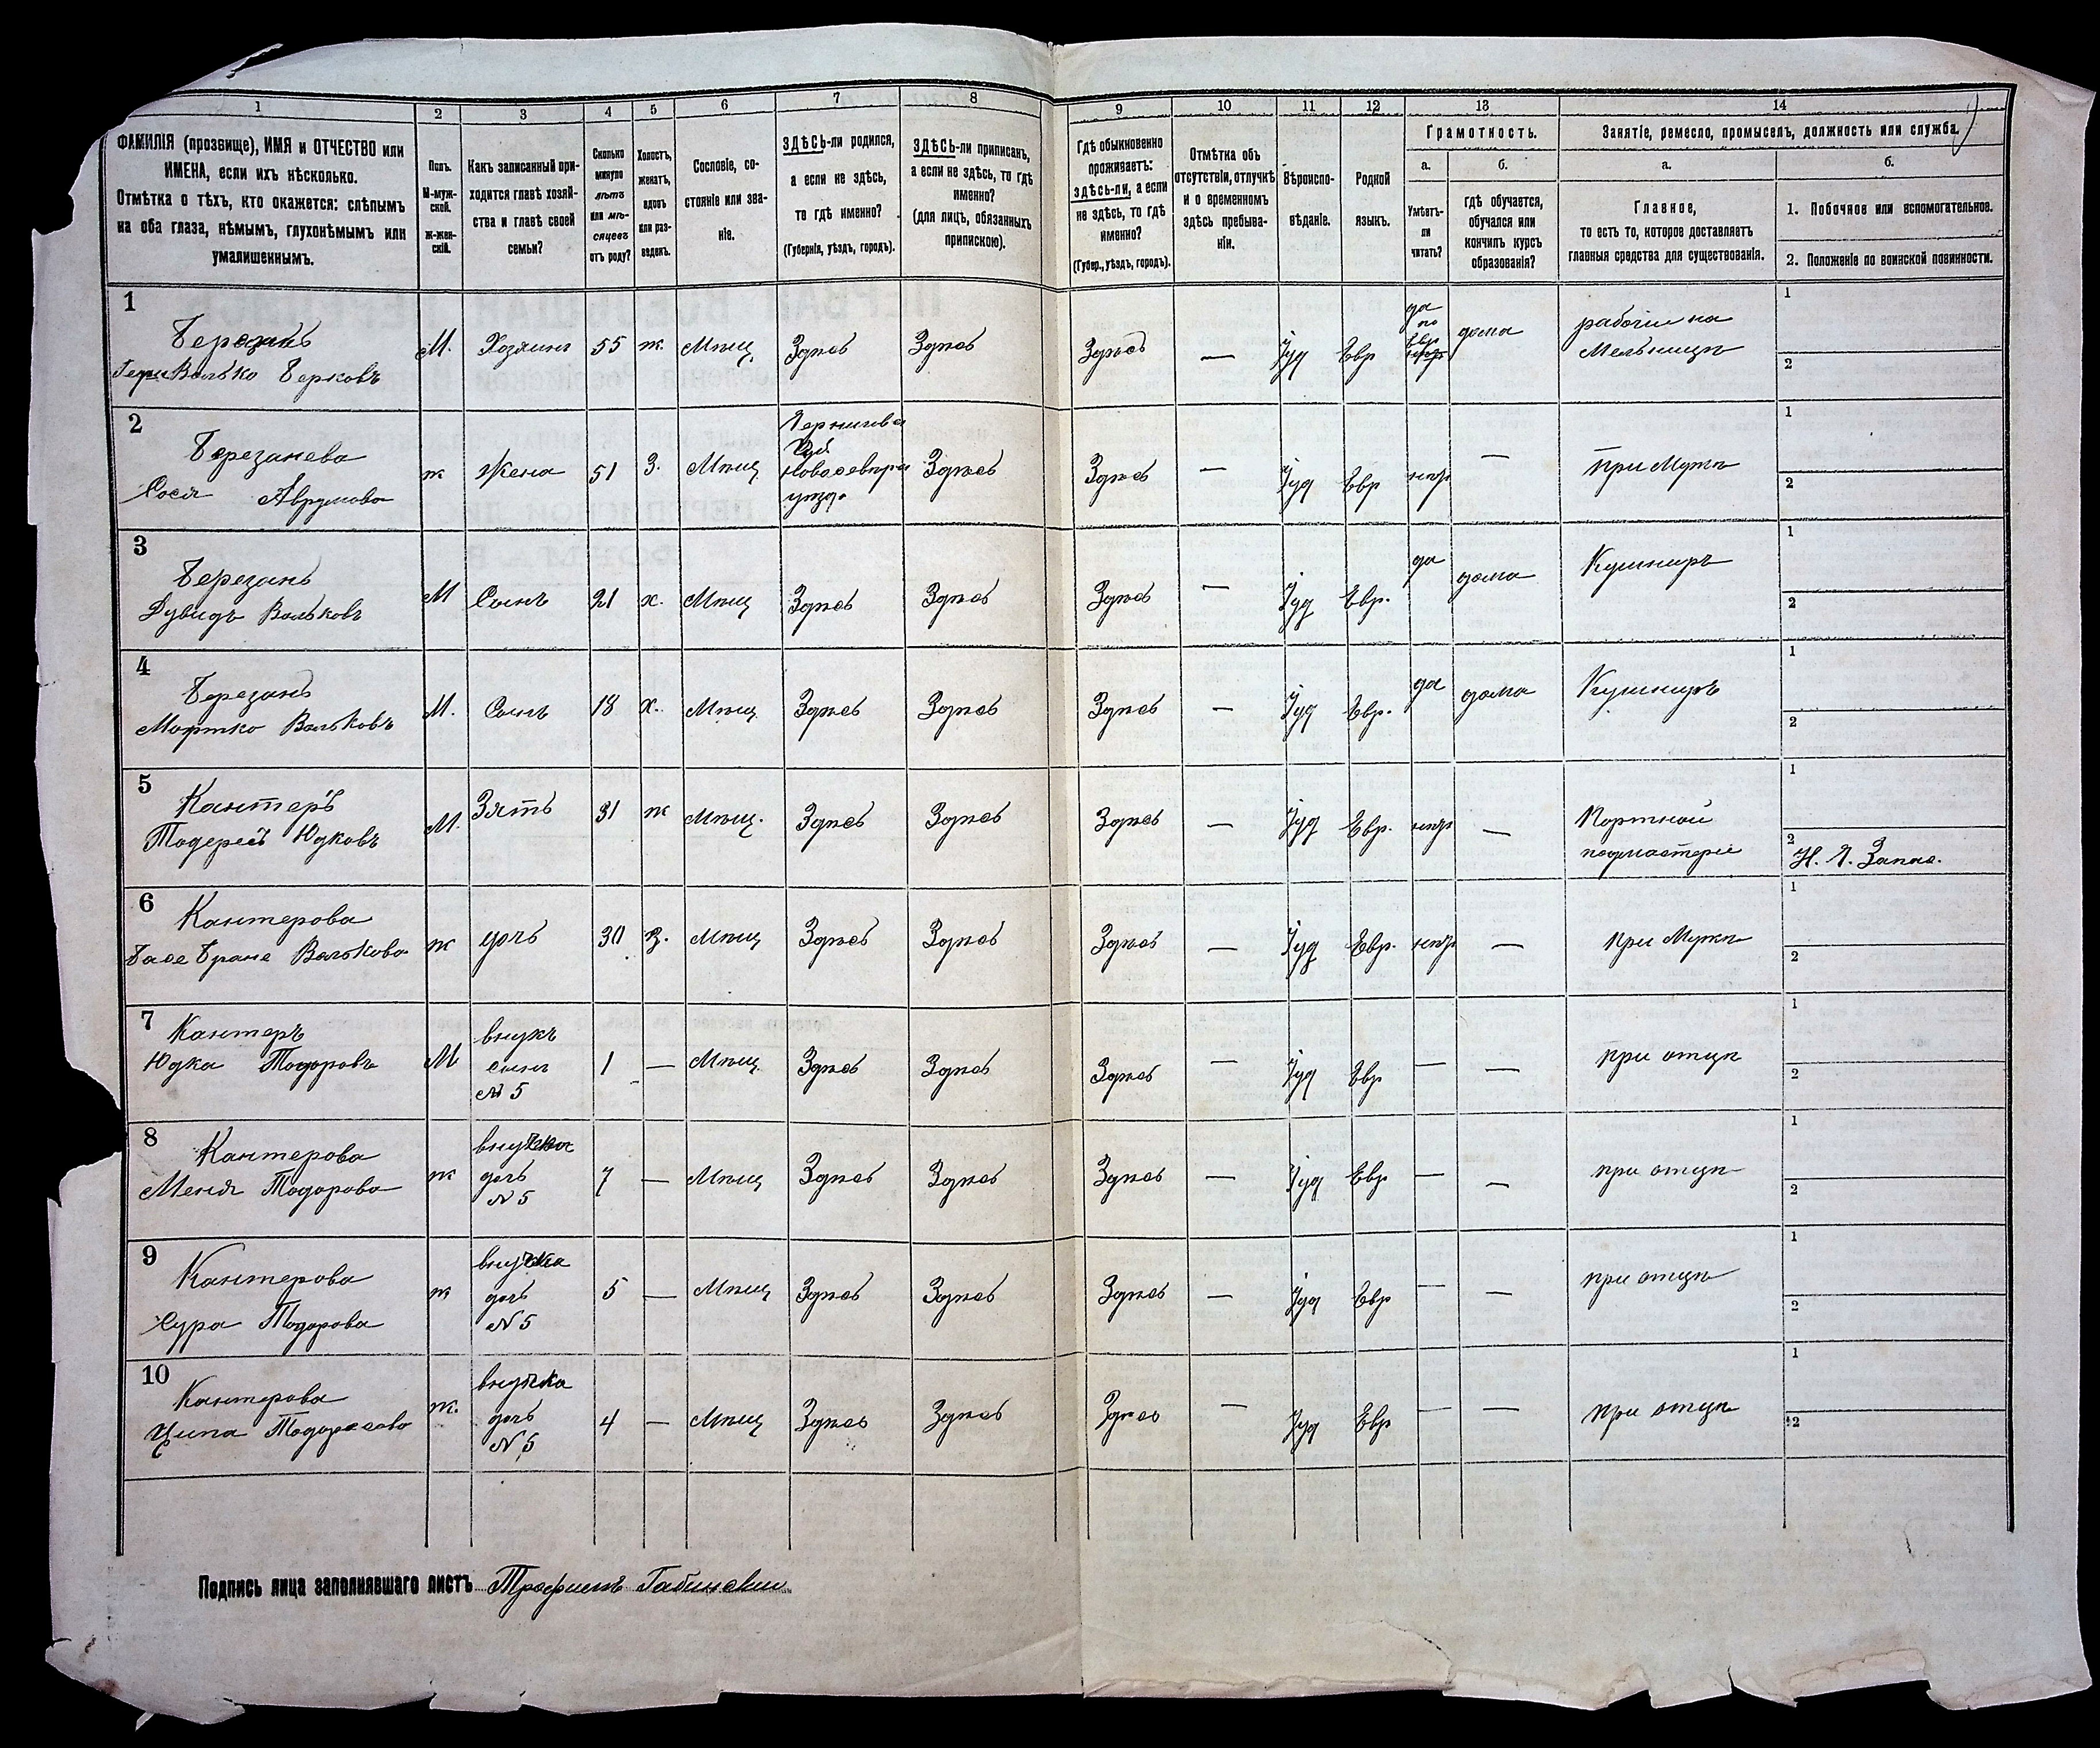 1 2 3 4 5 6 7 8 9 10 11 12 13 14
ФАМИЛІЯ (прозвище), ИМЯ и ОТЧЕСТВО или
ИМЕНА, если ихъ нѣсколько.
Отмѣтка о тѣхъ, кто окажется: слѣпымъ
на оба глаза, нѣмымъ, глухонѣмымъ или
умалишеннымъ.
Полъ.
М-муж-
ской.
ж-жен-
скій.
Какъ записанный при-
ходится главѣ хозяй-
ства и главѣ своей
семьи?
Сколько
минуло
лѣтъ
или мѣ-
сяцевъ
отъ роду?
Холостъ,
женатъ,
вдовъ
или раз-
веденъ.
Сословіе, со-
стояніе или зва-
ніе.
ЗДѢСЬ-ли родился,
а если не здѣсь,
то гдѣ именно?
(Губернія, уѣздъ, городъ).
ЗДѢСЬ-ли приписанъ,
а если не здѣсь, то гдѣ
именно?
(для лицъ, обязанныхъ
припискою).
Гдѣ обыкновенно
проживаетъ:
здѣсь-ли, а если
не здѣсь, то гдѣ
именно?
(Губер., уѣздъ, городъ).
Отмѣтка объ
отсутствіи, отлучкѣ
и о временномъ
здѣсь пребыва-
ніи.
Вѣроиспо-
вѣданіе.
Родной
языкъ.
Грамотность.
а.
Умѣетъ-
ли
читать?
б.
гдѣ обучается,
обучался или
кончилъ курсъ
образованія?
Занятіе, ремесло, промыселъ, должность или служба.
а.
Главное,
то есть то, которое доставляетъ
главныя средства для существованія.
б.
1. Побочное или вспомогательное.
2. Положеніе по воинской повинности.
1
Березанъ
Волько Берковъ
М. Хозяинъ 55 ж. Мѣщ. Здѣсь Здѣсь Здѣсь — Іуд Евр
да
по
евр.
дома
рабочій на
Мельницѣ
1
2
2
Березанева
Сося Аврумова
ж Жена 51 З. Мѣщ
Чернигов
Губ
уѣзд.
Здѣсь Здѣсь — Іуд Евр нѣтъ — при Мужѣ
1
2
3
Березанъ
Дувидъ Вольковъ
М Сынъ 21 х. Мѣщ Здѣсь Здѣсь Здѣсь — Іуд Евр. да дома Кушниръ
1
2
4
Березанъ
Мортко Вольковъ
М. Сынъ 18 х. Мѣщ Здѣсь Здѣсь Здѣсь — Іуд Евр. да дома Кушниръ
1
2
5
Кантеръ
Тодересъ Юдковъ
М. Зять 31 ж Мѣщ. Здѣсь Здѣсь Здѣсь — Іуд Евр. нѣтъ —
Портной
подмастеріе
1
2
Н. Ч. Запас.
6
Кантерова
Бася Бране Волькова
ж дочь 30 з. Мѣщ Здѣсь Здѣсь Здѣсь — Іуд Евр. нѣтъ — при Мужѣ
1
2
7
Кантеръ
Юдка Тодоровъ
М
внукъ
сынъ
№ 5
1 — Мѣщ Здѣсь Здѣсь Здѣсь — Іуд Евр — — при отцѣ
1
2
8
Кантерова
Меня Тодорова
ж
внучка
дочь
N 5
7 — Мѣщ Здѣсь Здѣсь Здѣсь — Іуд Евр — — при отцѣ
1
2
9
Кантерова
Сура Тодорова
ж
внучка
дочь
N 5
5 — Мѣщ Здѣсь Здѣсь Здѣсь — Іуд Евр — — при отцѣ
1
2
10
Кантерова
Ципа Тодоресова
ж.
внучка
дочь
N 5
4 — Мѣщ Здѣсь Здѣсь Здѣсь — Іуд Евр — — при отцѣ
1
2
Подпись лица заполнявшаго листъ Трофимъ Габински